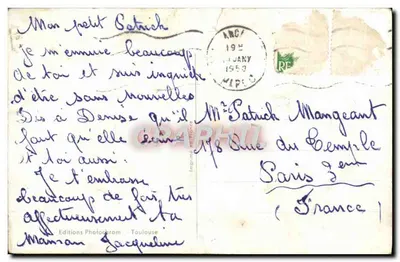 Mon petit Patrick
je m'ennuie beaucoup
de toi et suis inquiète
d'être sans nouvelles
Dis à Denise qu'il
faut qu'elle écrive
et toi aussi.
Je t'embrasse
beaucoup de fois très
affectueusement ta
Maman Jacqueline
Mr Patrick Mangeant
178 Rue du Temple
Paris 3eme
(France)
Editions Photo Toulouse
CPARAMA